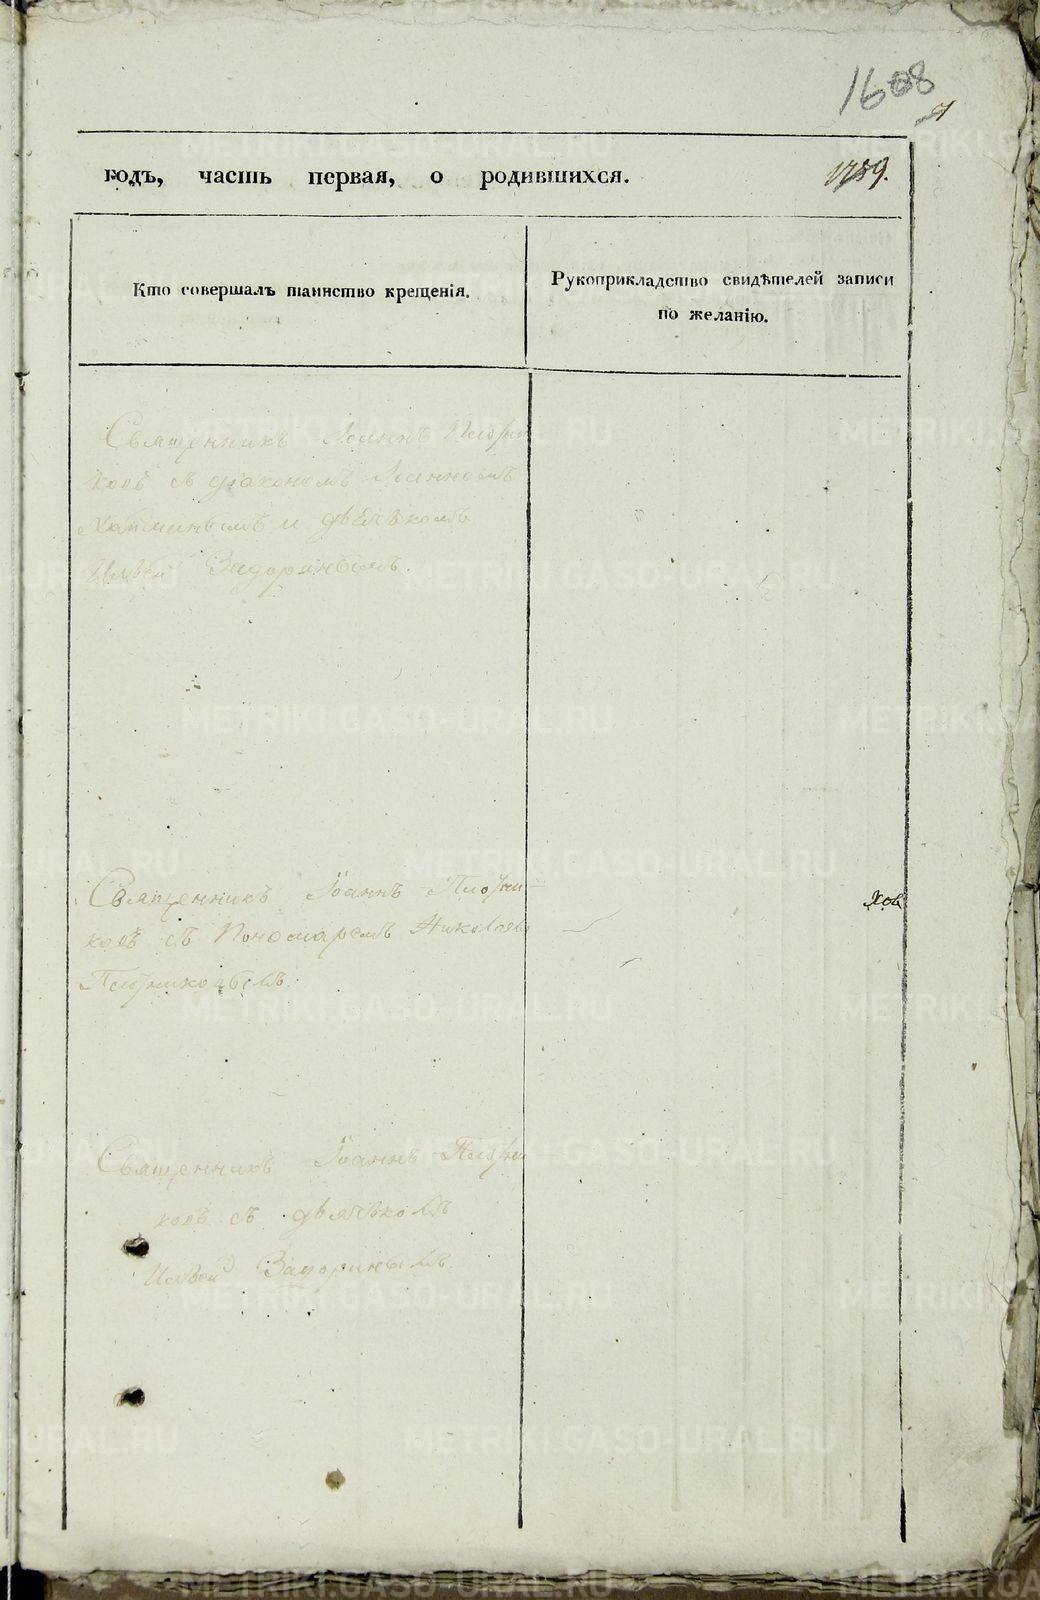 1608
годъ, часть первая, о родившихся.
1789.
Кто совершалъ таинство крещенія.
Рукоприкладство свидѣтелей записи
по желанію.
Священникъ Іоаннъ Плотни
ковъ съ діакономъ Іоанномъ
и дьячкомъ
Ильей Задоринымъ.
Священникъ Іоаннъ Плотни
ковъ съ Пономаремъ Николаемъ
Плотниковымъ.
Священникъ Іоаннъ Плотни
ковъ съ дьячкомъ
Ильей Задоринымъ.
METRIKI.GASO-URAL.RU